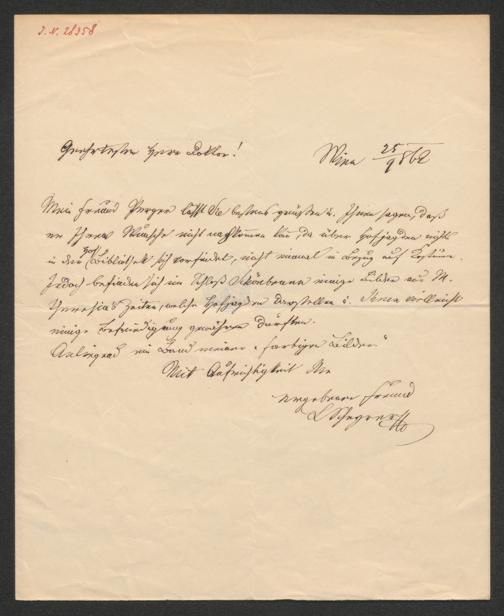 J. N. 28358
Geehrtester Herr Doktor!
Wien 25/9 862
Mein Freund Perger läßt Sie bestens grüßen u. Ihnen sagen, daß
er Ihrem Wunsche nicht nachkommen könne, da über Hofjagden nichts
in der Hof Bibliothek sich vorfindet, nicht einmal in Bezug auf Costüme.
Jedoch befinden sich im Schloß Schönbrunn einige Bilder aus M.
Theresia's Zeiten, welche Hofjagden darstellen u. Ihnen vielleicht
einige Befriedigung gewähren dürften.
Anliegend ein Band meiner "farbigen Bilder"
Mit Aufrichtigkeit Ihr
ergebener Freund